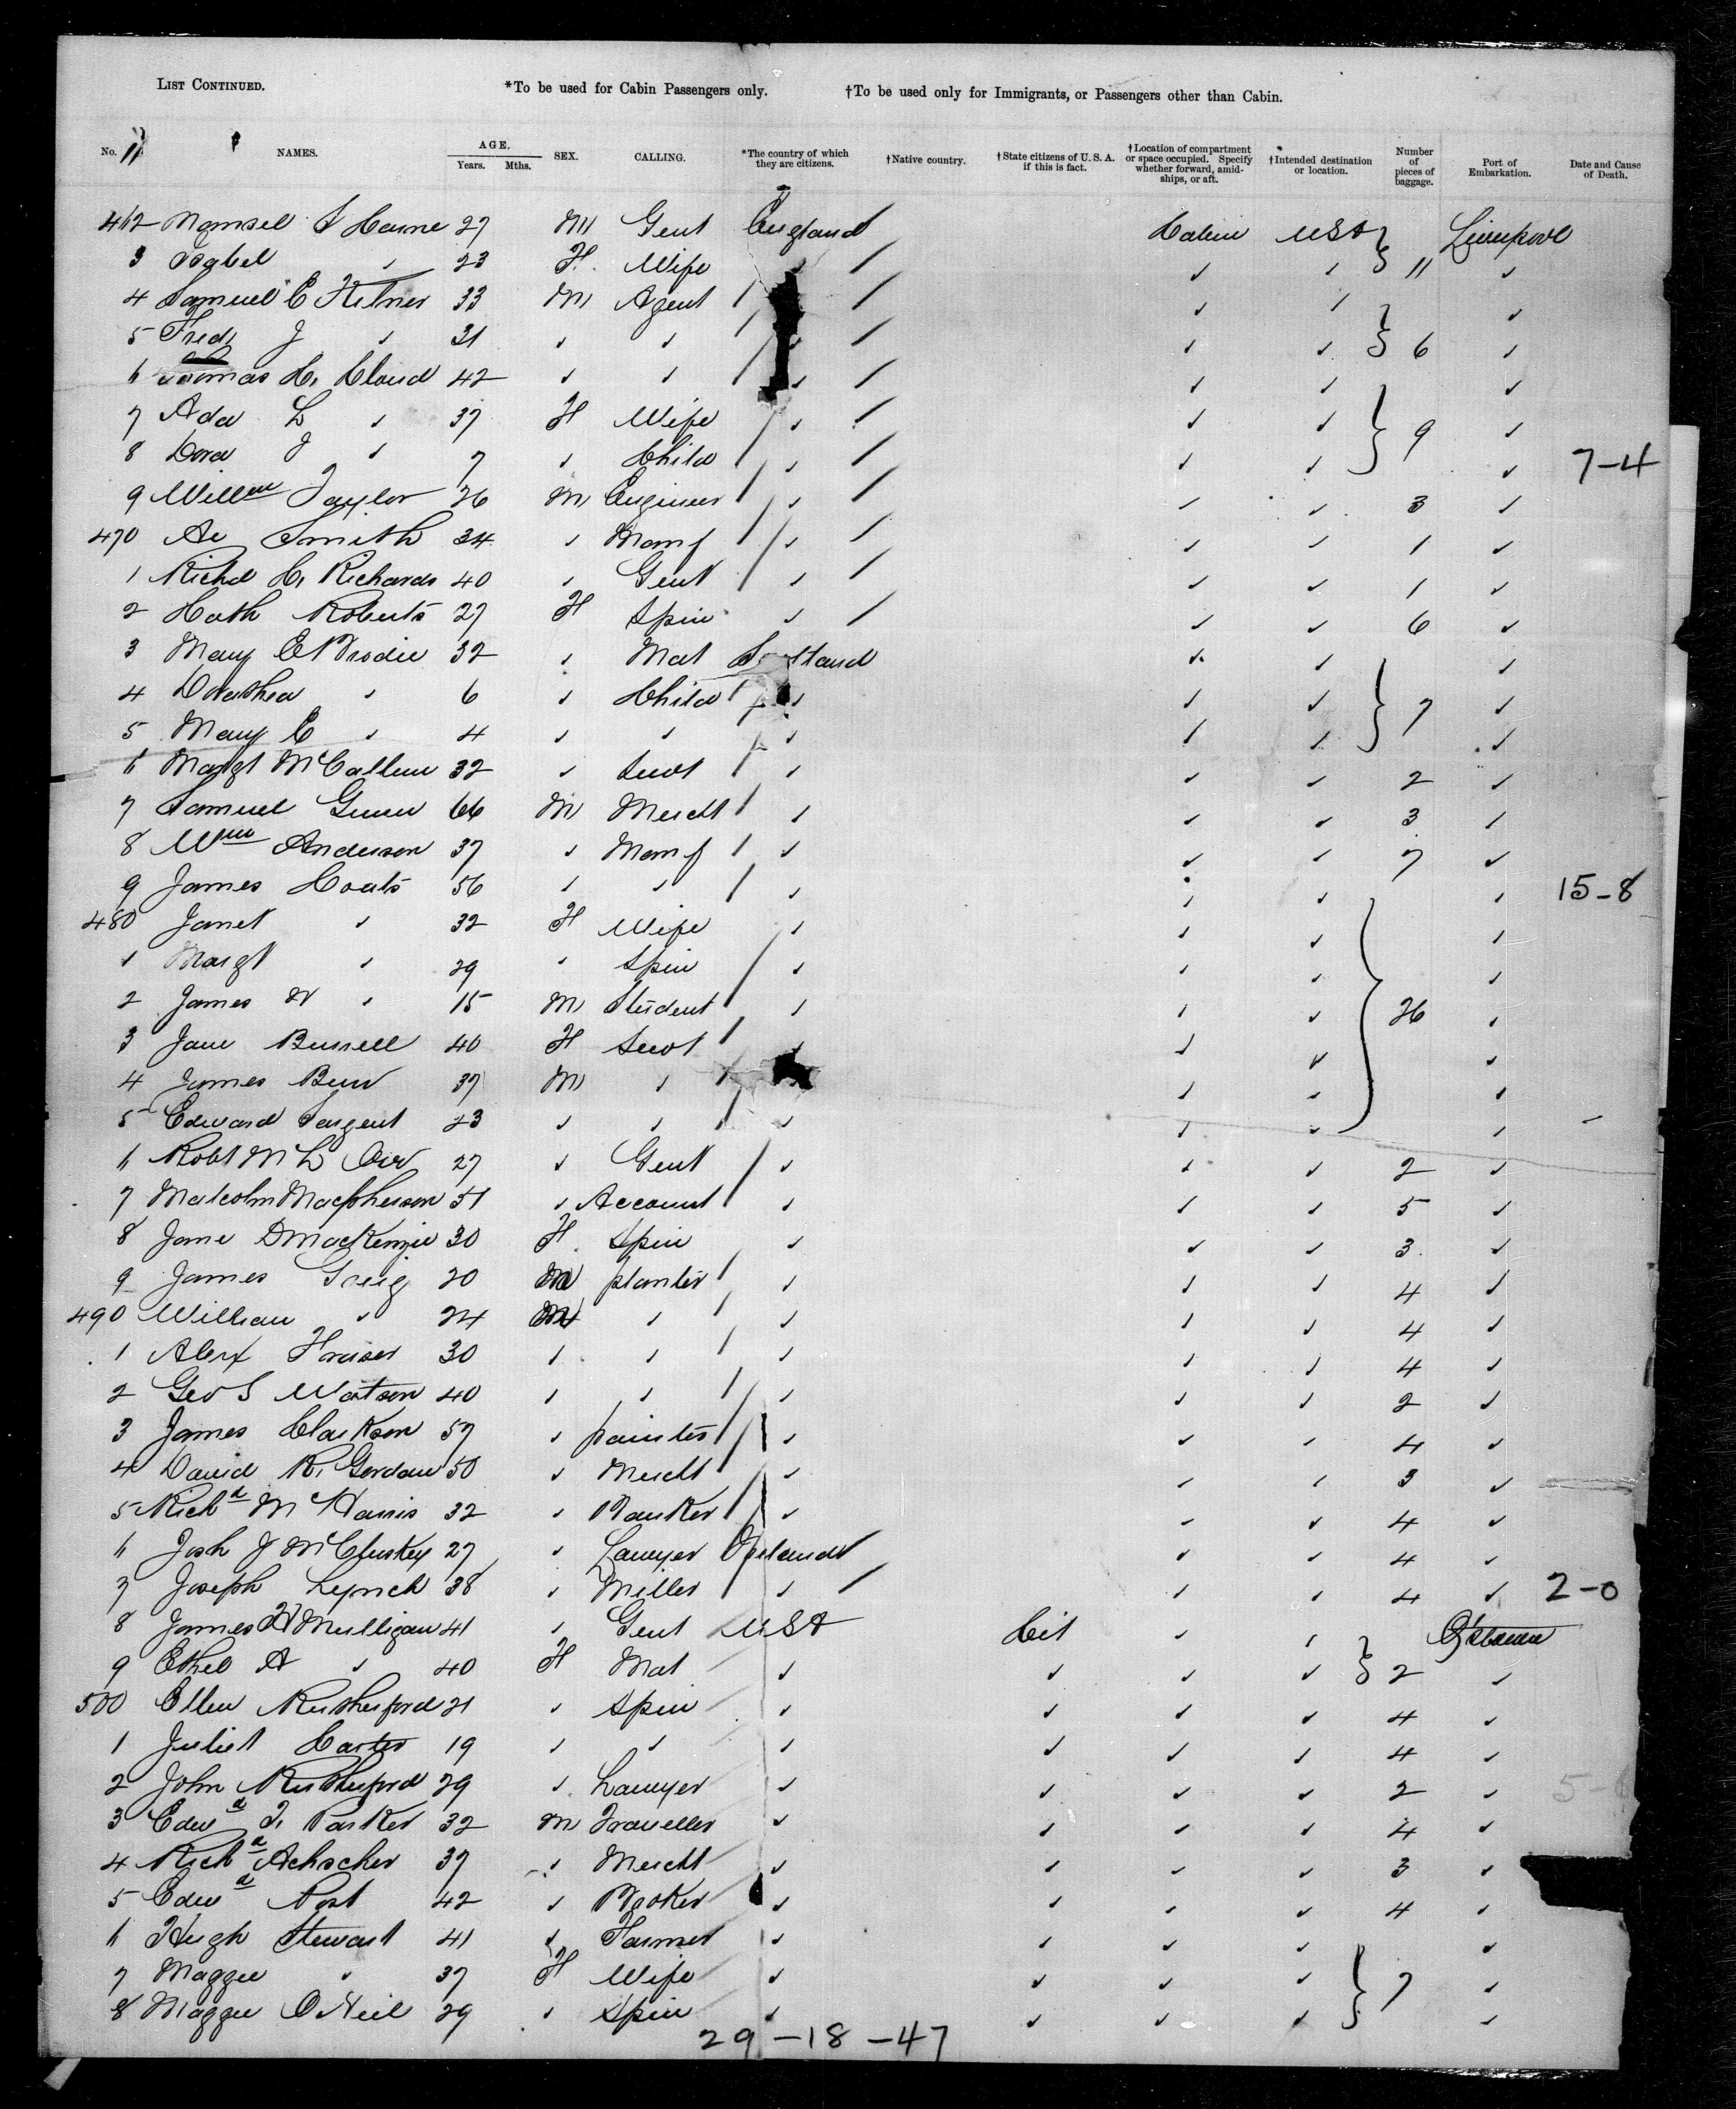 LIST CONTINUED. *To be used for Cabin Passengers only. †To be used only for Immigrants, or Passengers other than Cabin.
No. NAMES. AGE. Years. Mths. SEX. CALLING. *The country of which they are citizens. †Native country. †State citizens of U. S. A. if this is fact. †Location of compartment or space occupied. Specify whether forward, amidships, or aft. †Intended destination or location. Number of pieces of baggage. Port of Embarkation. Date and Cause of Death.
11
462 27 M Gent England Cabin USA Liverpool
3 Isabel " 23 F. Wife " " 11 "
4 Samuel C 33 M Agent " " "
5 Fred J " 31 " " " " " 6 "
6 Thomas C. Cloud 42 " " " " " "
7 Ada L " 37 F Wife " " " 9 "
8 Dora J " 7 " Child " " " " 7-4
9 Willm Taylor 26 M Engineer " " " 3 "
470 Smith 34 " Manf " " " 1 "
1 Richd C. Richards 40 " Gent " " " 1 "
2 Cath Roberts 27 F Spin " " " 6 "
3 Mary E Brodie 32 " Mat Scotland " " "
4 " 6 " Child " " " 7 "
5 Mary C " 4 " " " " " "
6 Margt McCallum 32 " Servt " " " 2 "
7 Samuel 66 M Mercht " " " 3 "
8 Wm Anderson 37 " Manf " " " 7 "
9 James Coats 56 " " " " " " 15-8
480 Janet " 32 F Wife " " " "
1 Margt " 29 " Spin " " " "
2 James " 15 M Student " " " 26 "
3 Jane Russell 40 F Servt " " " "
4 James 37 M " " " "
5 Edward Sargent 23 " " " " " "
6 Robt M L Orr 27 " Gent " " " 2 "
7 Malcolm Macpherson 51 " Account " " " 5 "
8 Jane D Mackenzie 30 F. Spin " " " 3 "
9 James Greig 20 M planter " " " 4 "
490 William " 24 M " " " " 4 "
1 Alex Fraser 30 " " " " " 4 "
2 Geo S Watson 40 " " " " " 2 "
3 James Clarkson 57 " painter " " " 4 "
4 David R. Gordon 50 " Mercht " " " 3 "
5 Richd M Harris 32 " Banker " " " 4 "
6 Josh J McCluskey 27 " Lawyer Ireland " " 4 "
7 Joseph Lynch 38 " Miller " " " 4 " 2-0
8 James H Mulligan 41 " Gent USA Cit " "
9 Ethel A " 40 F Mat " " " " 2 "
500 Ellen Rutherford 21 " Spin " " " " 4 "
1 Juliet Carter 19 " " " " " " 4 "
2 John Rutherford 29 " Lawyer " " " " 2 "
3 Edwd T. Parker 32 M Traveller " " " " 4 "
4 Richd 37 " Mercht " " " " 3 "
5 Edwd Post 42 " " " " " 4 "
6 Hugh Stewart 41 " Farmer " " " " "
7 Maggie " 37 F Wife " " " " 7 "
8 Maggie O Neil 29 " Spin " " " " "
29-18-47